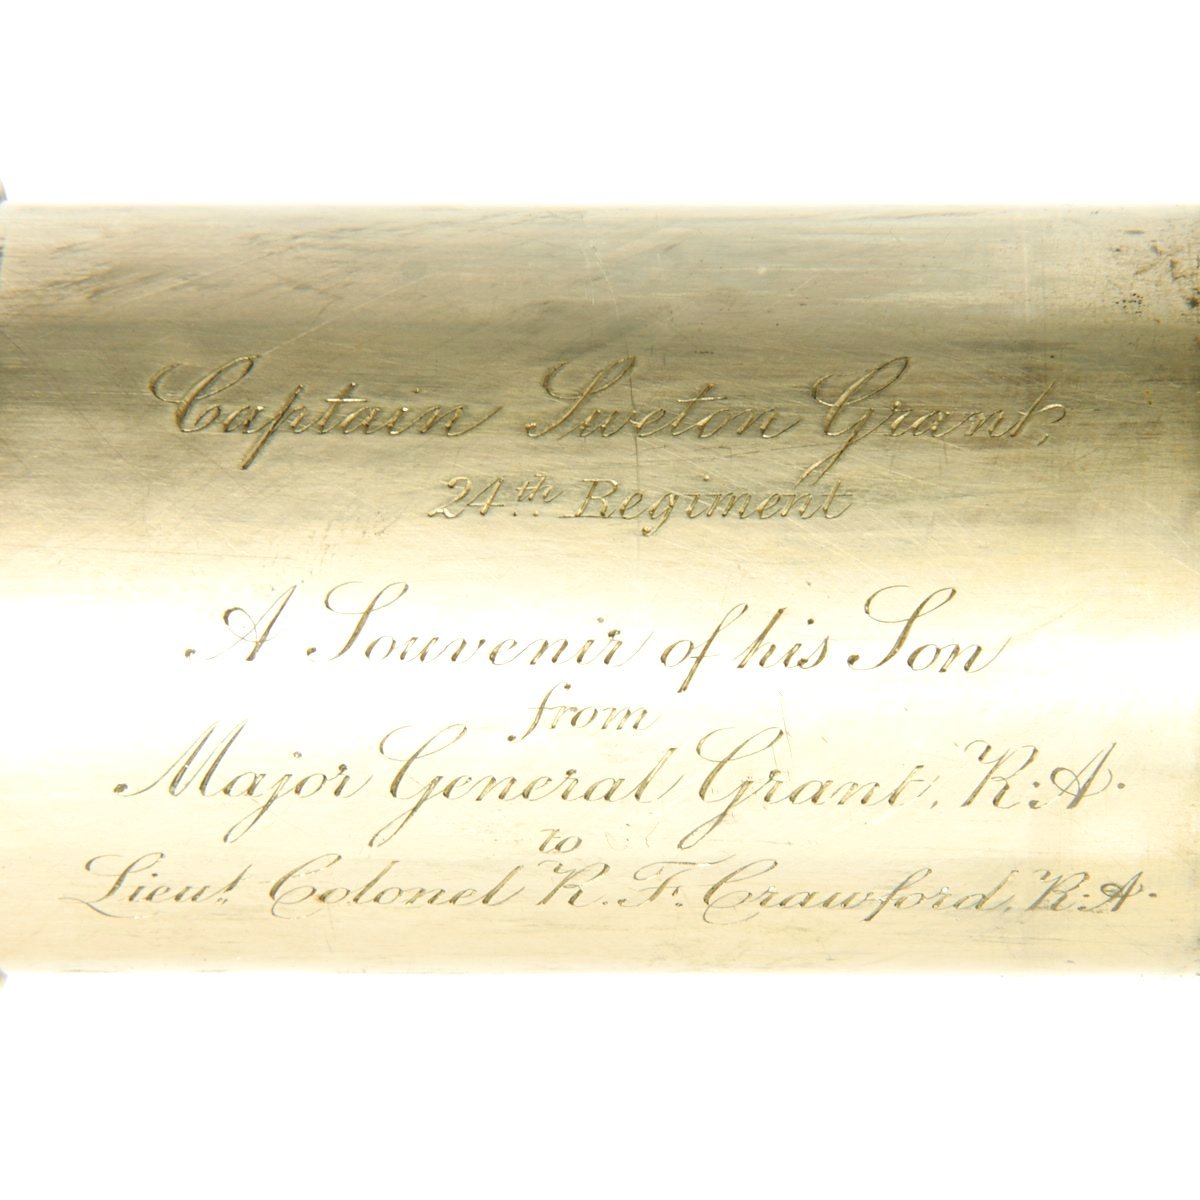 Captain Sweton Grant,
24th Regiment
A Souvenir of his Son
from
Major General Grant, R:A.
to
Lieut. Colonel R. F. Crawford, R:A.